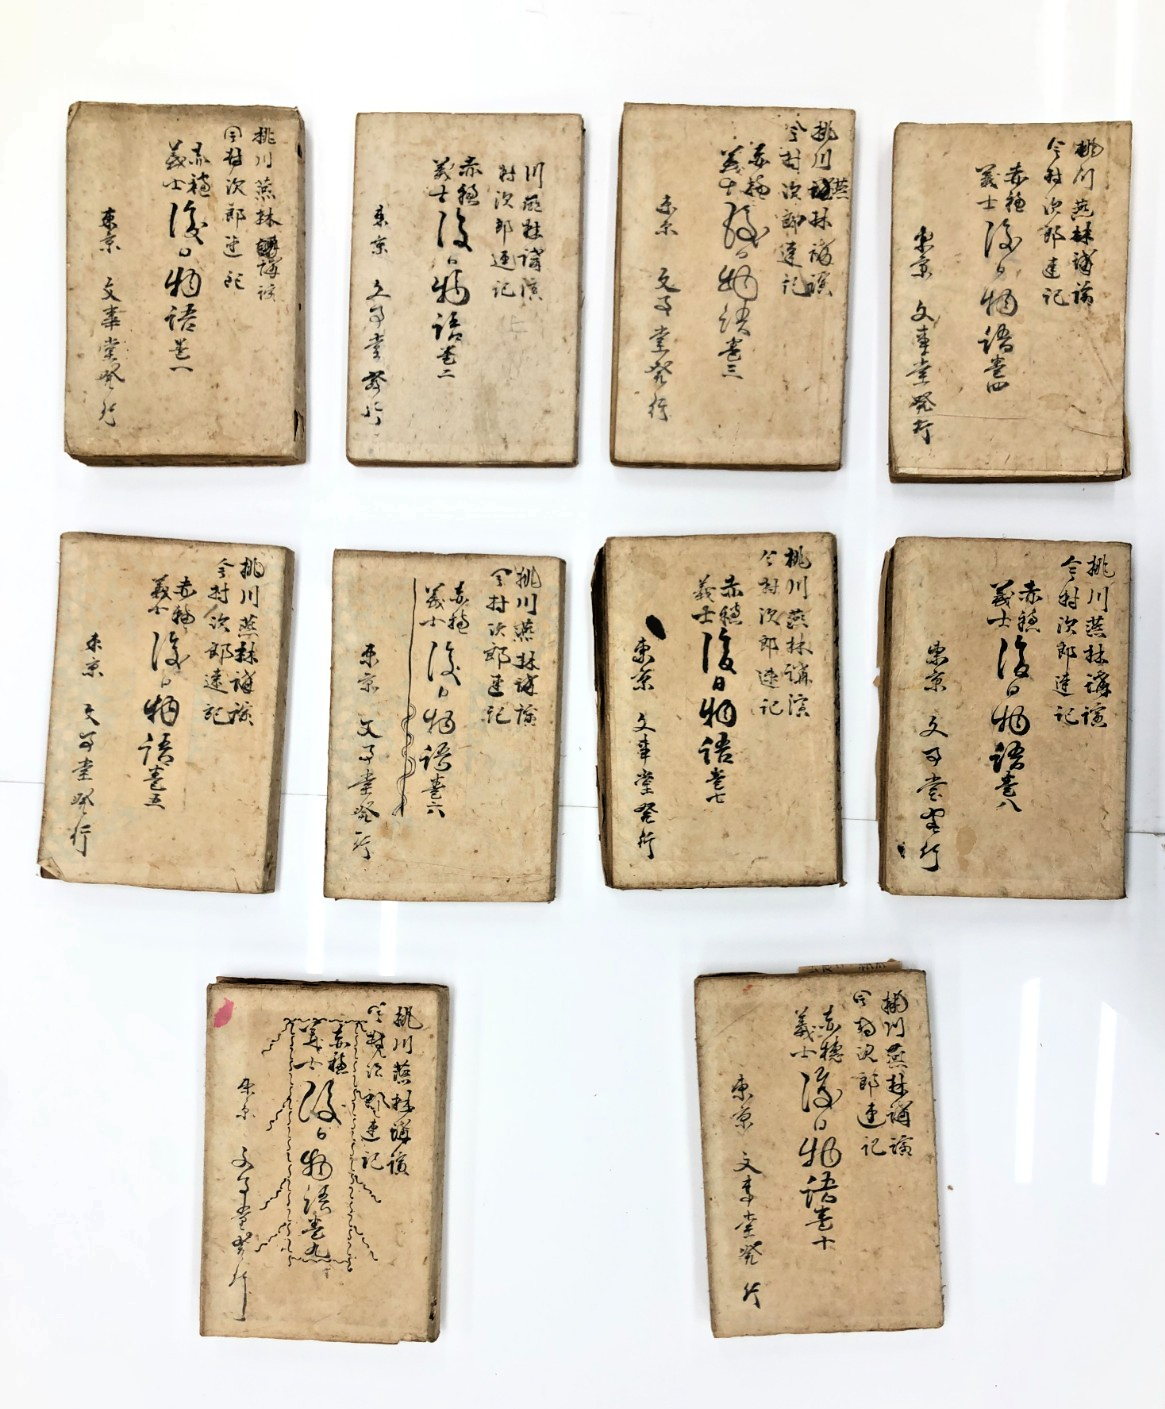 桃川燕林講演
今村次郎速記
赤穂
義士
後日物語巻一
東京 文事堂発行
川燕林講演
村次郎速記
赤穂
義士
後日物語巻二
東京 文事堂発行
桃川燕林講演
今村次郎速記
赤穂
義士
後日物語巻三
東京 文事堂発行
桃川燕林講演
今村次郎速記
赤穂
義士
後日物語巻四
東京 文事堂発行
桃川燕林講演
今村次郎速記
赤穂
義士
後日物語巻五
東京 文事堂発行
桃川燕林講演
今村次郎速記
赤穂
義士
後日物語巻六
東京 文事堂発行
桃川燕林講演
今村次郎速記
赤穂
義士
後日物語巻七
東京 文事堂発行
桃川燕林講演
今村次郎速記
赤穂
義士
後日物語巻八
東京 文事堂発行
桃川燕林講演
今村次郎速記
赤穂
義士
後日物語巻九
東京 文事堂発行
桃川燕林講演
今村次郎速記
赤穂
義士
後日物語巻十
東京 文事堂発行